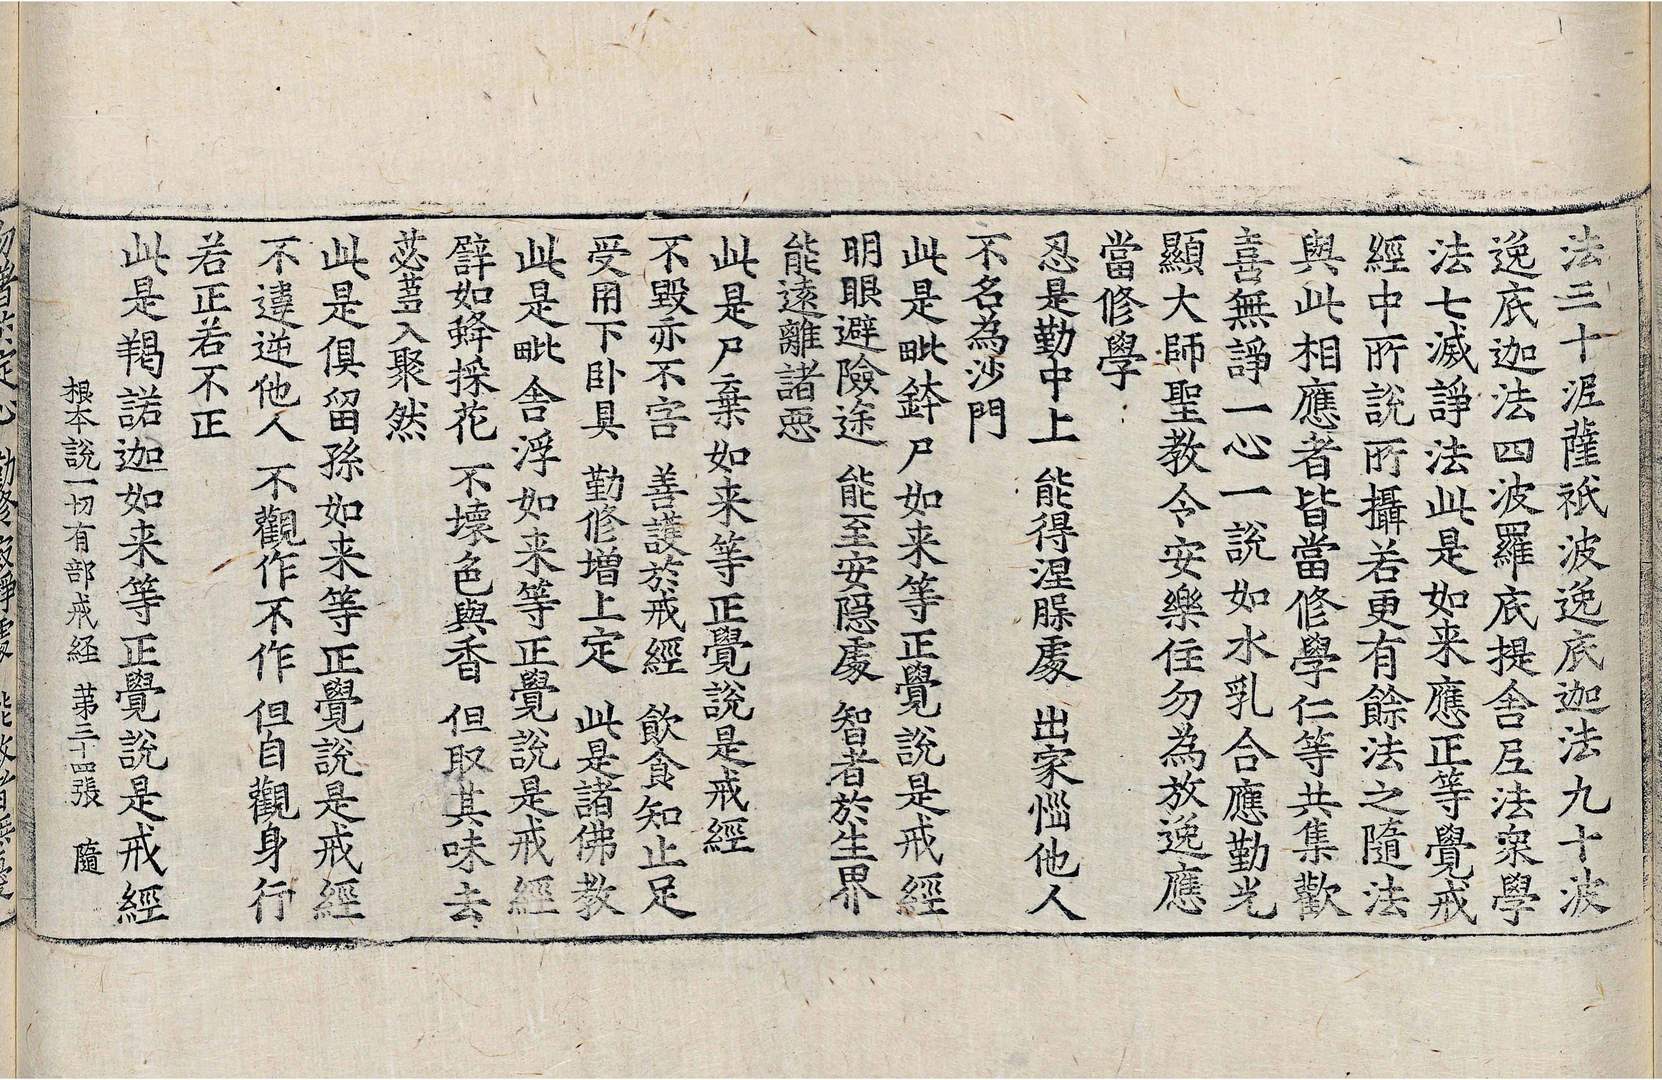 法三十泥薩祇波逸底迦法九十波
逸底迦法四波羅底提舍尼法衆學
法七滅諍法此是如来應正等覺戒
經中所說所攝若更有餘法之隨法
與此相應者皆當修學仁等共集歡
喜無諍一心一說如水乳合應勤光
顯大師聖教令安樂住勿為放逸應
當修學
忍是勤中上　能得涅䐗處　出家惱他人
不名為沙門
此是毗鉢尸如来等正覺說是戒經
明眼避險途　能至安隱處　智者於生界
能遠離諸惡
此是尸棄如来等正覺說是戒經
不毀亦不害　善護於戒經　飲食知止足
受用下卧具　勤修增上定　此是諸佛教
此是毗舍浮如来等正覺說是戒經
譬如蜂採花　不壞色與香　但取其味去
苾蒭入聚然
此是俱留孫如来等正覺說是戒經
不違逆他人　不觀作不作　但自觀身行
若正若不正
此是羯諾迦如来等正覺說是戒經
根本說一切有部戒経　苐三十四張　隨